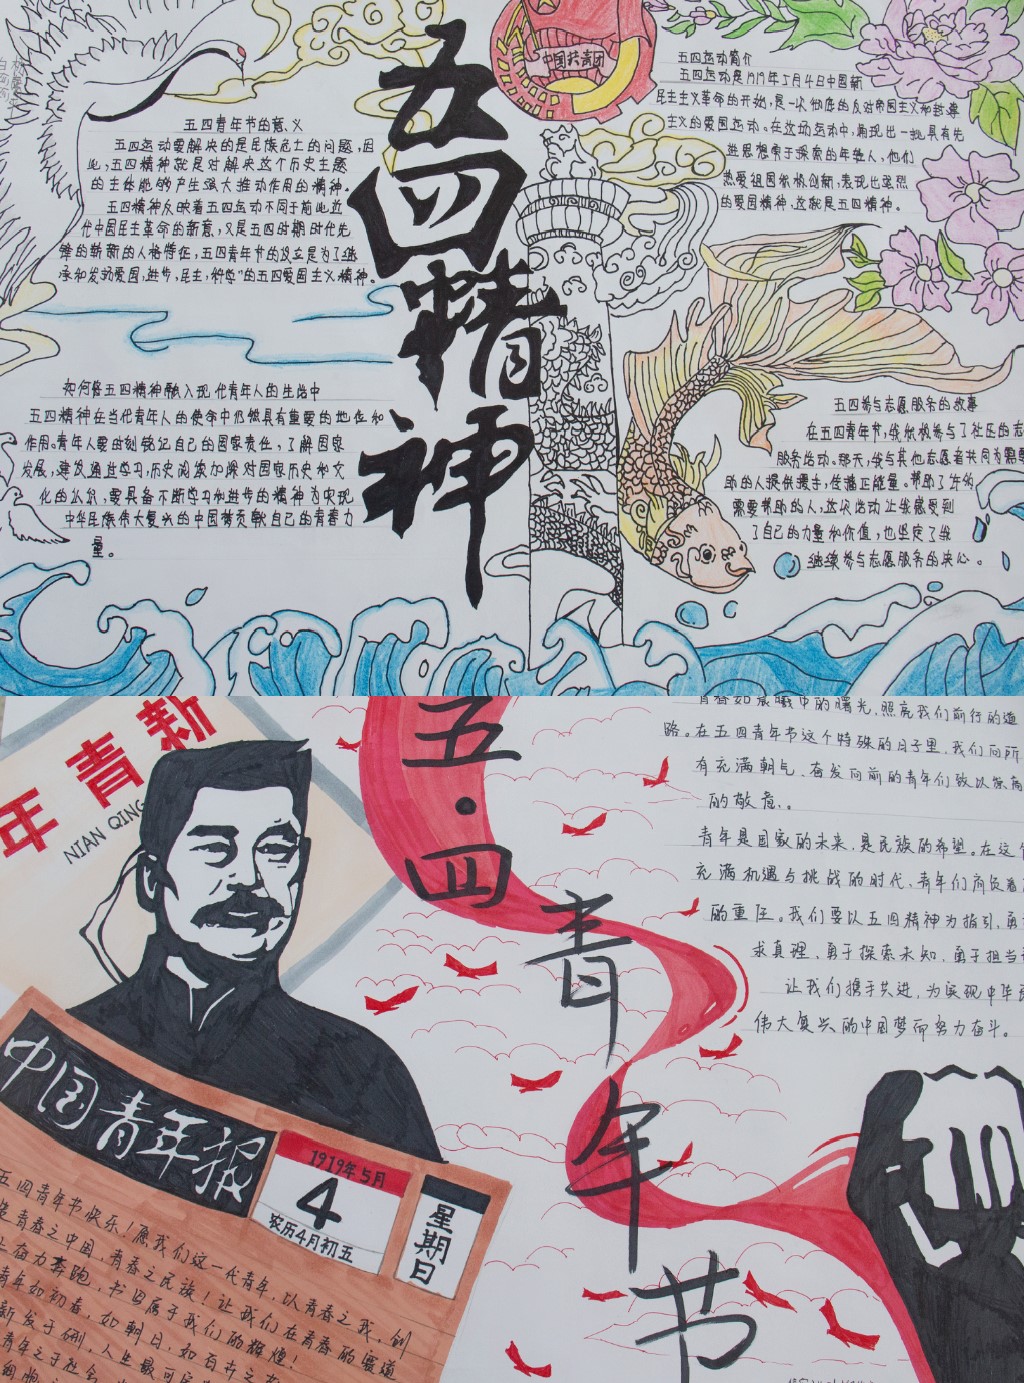 五四精神
中国共青团
五四青年节的意义
五四运动要解决的是民族危亡的问题,因
此,五四精神就是对解决这个历史主题
的主体能够产生强大推动作用的精神。
五四精神反映着五四运动不同于前此近
代中国民主革命的新意,又是五四时期时代先
锋的崭新的人格特征,五四青年节的设立是为了继
承和发扬爱国,进步,民主,科学"的五四爱国主义精神。
如何将五四精神融入现代青年人的生活中
五四精神在当代青年人的使命中仍然具有重要的地位和
作用。青年人要时刻铭记自己的国家责任,了解国家
发展,建议通过学习,历史阅读加深对国家历史和文
化的认识,要具备不断学习和进步的精神为实现
中华民族伟大复兴的中国梦贡献自己的青春力
量。
五四运动简介
五四运动是1919年5月4日中国新
民主主义革命的开始,是一次彻底的反对帝国主义和封建
主义的爱国运动。在这场运动中,涌现出一批具有先
进思想勇于探索的年轻人,他们
热爱祖国积极创新,表现出强烈
的爱国精神。这就是五四精神。
五四参与志愿服务的故事
在五四青年节,我积极参与了社区的志
服务活动。那天,我与其他志愿者共同为需要
助的人提供援手,传播正能量。帮助了许多
需要帮助的人,这次活动让我感受到
了自己的力量和价值,也坚定了我
继续参与志愿服务的决心。
新青年
NIAN QING
五·四青年节
中国青年报
1919年5月
4
农历4月初五
星期日
五四青年节快乐!愿我们这一代青年,以青春之我,创
造青春之中国,青春之民族!让我们在青春的赛道
上奋力奔跑,书写属于我们的辉煌!
青年如初春,如朝日,如百卉之
新发于硎,人生最可
青年之于社会
青春如晨曦中的曙光,照亮我们前行的道
路。在五四青年节这个特殊的日子里,我们向所
有充满朝气、奋发向前的青年们致以崇高
的敬意。
青年是国家的未来,是民族的希望。在这个
充满机遇与挑战的时代,青年们肩负着
的重任。我们要以五四精神为指引,勇
求真理、勇于探索未知、勇于担当
让我们携手共进,为实现中华民
伟大复兴的中国梦而努力奋斗。